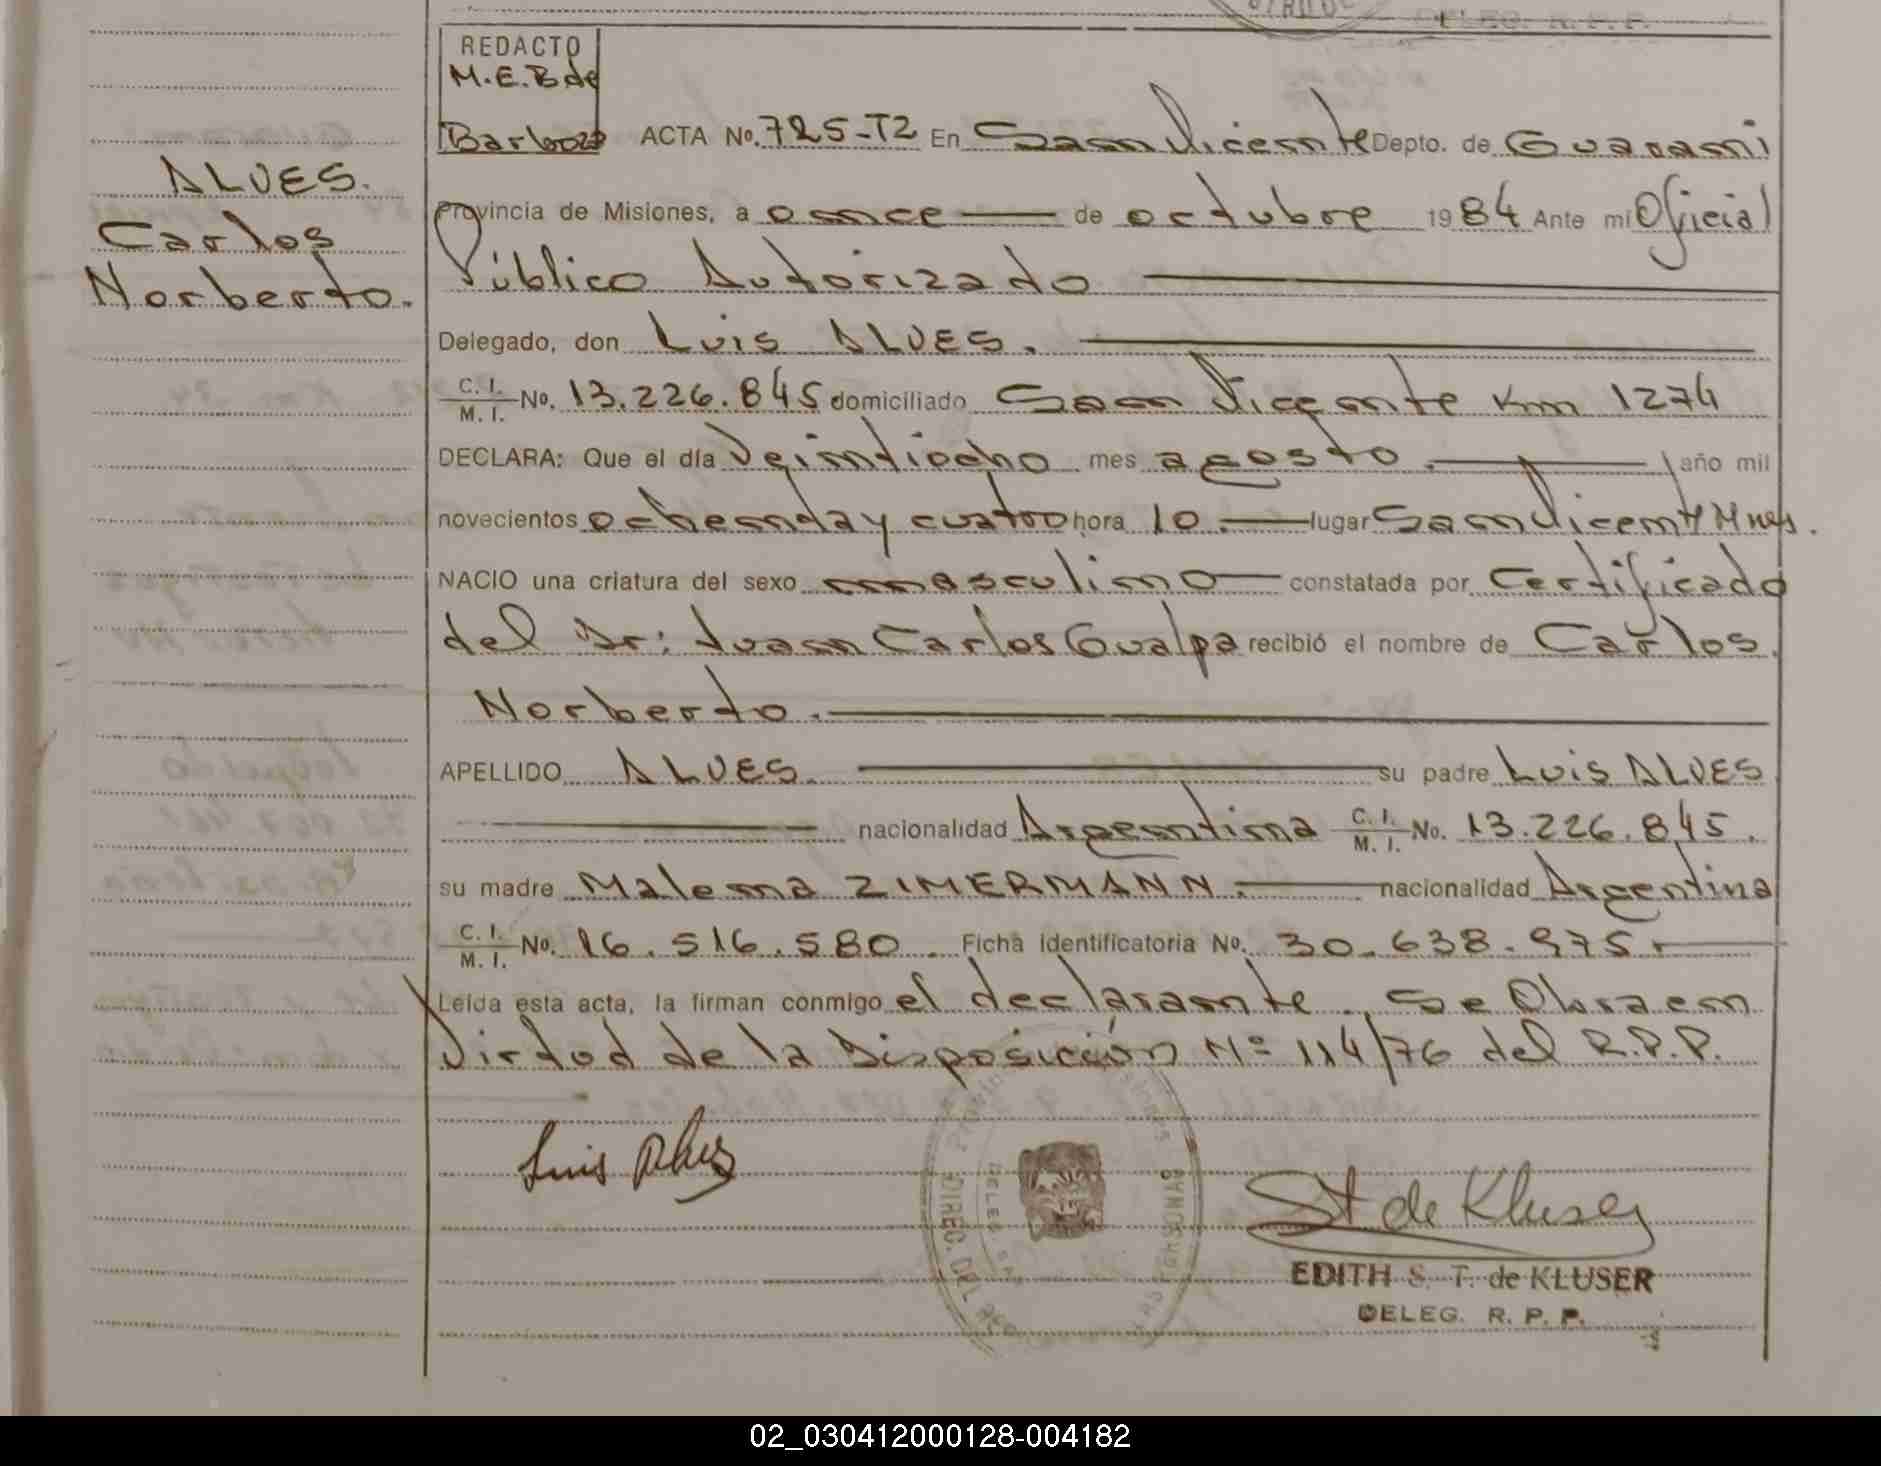 REDACTO
M.E.B de
Barboza
ACTA No. 725-T2 En San Vicente Depto. de Guarani
ALVES.
Carlos
Norberto.
Provincia de Misiones, a once de octubre 1984 Ante mi Oficial
Público Autorizado
Delegado, don Luis ALVES.
C. I. / M. I. No. 13.226.845 domiciliado San Vicente Km 1274
DECLARA: Que el día Veintiocho mes agosto. año mil
novecientos ochenda y cuatro hora 10. lugar San Vicente Mnes.
NACIO una criatura del sexo masculino constatada por Certificado
del Dr: Juan Carlos Gualpa recibió el nombre de Carlos
Norberto.
APELLIDO ALVES. su padre Luis ALVES
nacionalidad Argentina C. I. / M. I. No. 13.226.845.
su madre Malena ZIMERMANN. nacionalidad Argentina
C. I. / M. I. No. 16.516.580. Ficha Identificatoria No. 30.638.975.
Leída esta acta, la firman conmigo el declarante. Se Obra en
Virtud de la Disposición Nº 114/76 del R.P.P.
Luis Alves
St de Kluser
EDITH S. T. de KLUSER
DELEG. R. P. P.
DIREC. DEL REG
PERSONAS
02_030412000128-004182